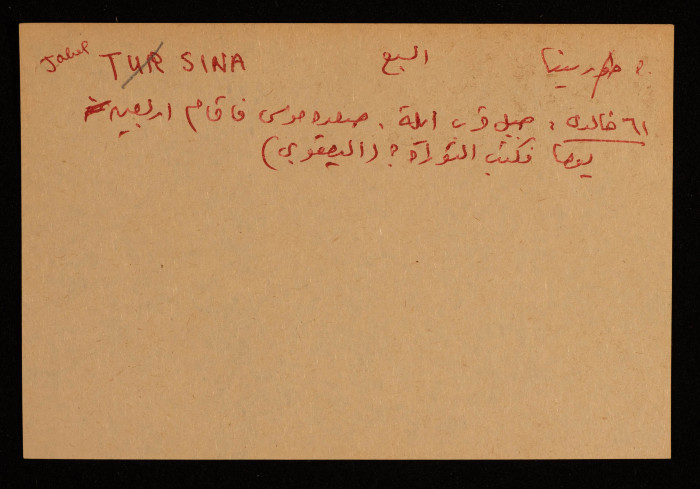 Jabel TUR SINA السبع طور سينا ?
٦١ خالدي : جبل قرب ايلة . صعده موسى فاقام اربعين
يوما فكتب التوراة ? (اليعقوبي)